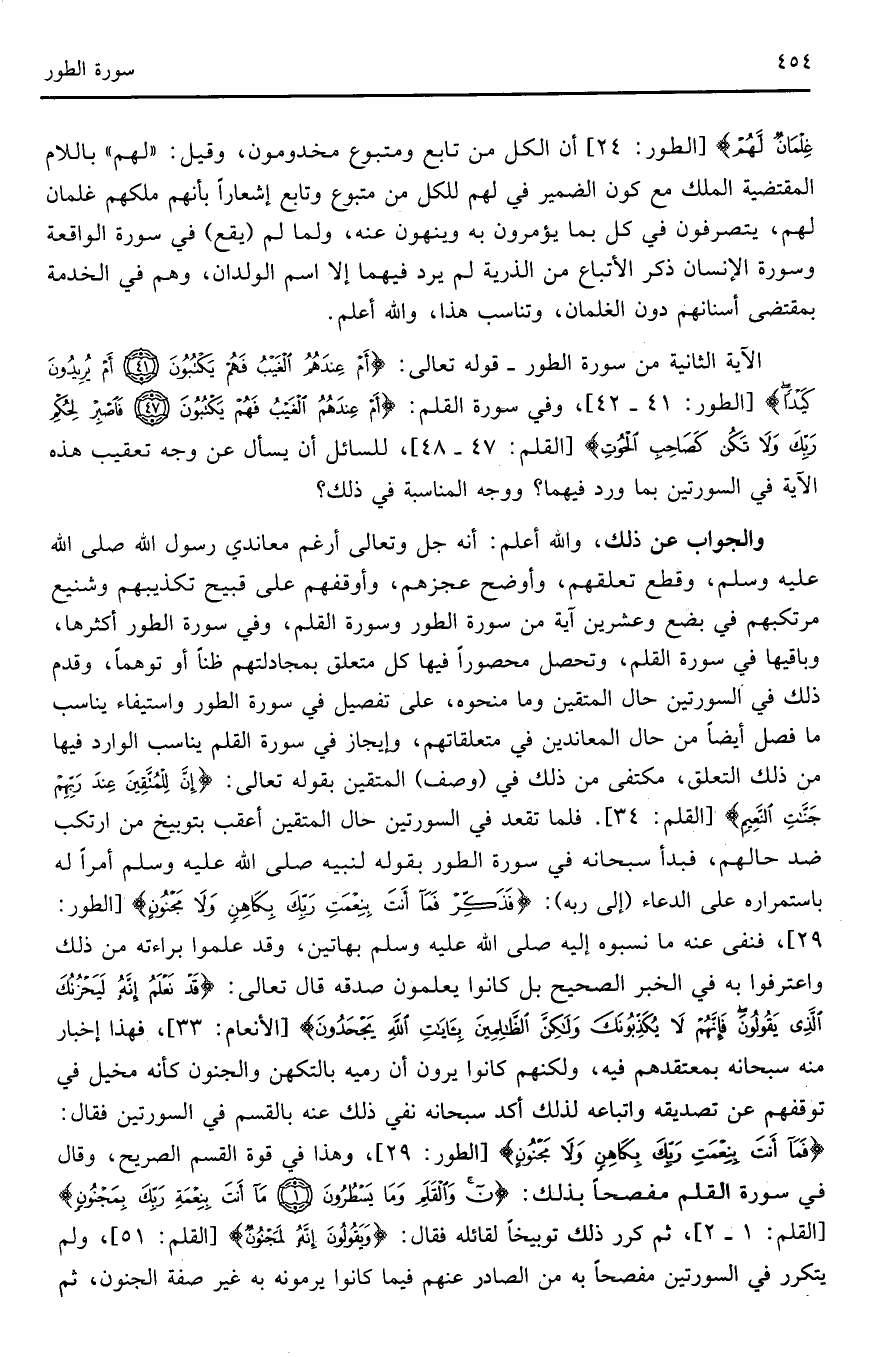 ٤٥٤
سورة الطور
غِلْمَانٌ لَّهُمْ﴾ [الطور: ٢٤] أن الكل من تابع ومتبوع مخدومون، وقيل: «لهم» باللام
المقتضية الملك مع كون الضمير في لهم للكل من متبوع وتابع إشعاراً بأنهم ملكهم غلمان
لهم، يتصرفون في كل بما يؤمرون به وينهون عنه، ولما لم (يقع) في سورة الواقعة
وسورة الإنسان ذكر الأتباع من الذرية لم يرد فيهما إلا اسم الولدان، وهم في الخدمة
بمقتضى أسنانهم دون الغلمان، وتناسب هذا، والله أعلم.
الآية الثانية من سورة الطور ـ قوله تعالى: ﴿أَمْ عِندَهُمُ ٱلْغَيْبُ فَهُمْ يَكْتُبُونَ ٤١ أَمْ يُرِيدُونَ
كَيْدًاۖ﴾ [الطور: ٤١ ـ ٤٢]، وفي سورة القلم: ﴿أَمْ عِندَهُمُ ٱلْغَيْبُ فَهُمْ يَكْتُبُونَ ٤٧ فَٱصْبِرْ لِحُكْمِ
رَبِّكَ وَلَا تَكُن كَصَاحِبِ ٱلْحُوتِ﴾ [القلم: ٤٧ ـ ٤٨]، للسائل أن يسأل عن وجه تعقيب هذه
الآية في السورتين بما ورد فيهما؟ ووجه المناسبة في ذلك؟
والجواب عن ذلك، والله أعلم: أنه جل وتعالى أرغم معاندي رسول الله صلى الله
عليه وسلم، وقطع تعلقهم، وأوضح عجزهم، وأوقفهم على قبيح تكذيبهم وشنيع
مرتكبهم في بضع وعشرين آية من سورة الطور وسورة القلم، وفي سورة الطور أكثرها،
وباقيها في سورة القلم، وتحصل محصوراً فيها كل متعلق بمجادلتهم ظناً أو توهماً، وقدم
ذلك في السورتين حال المتقين وما منحوه، على تفصيل في سورة الطور واستيفاء يناسب
ما فصل أيضاً من حال المعاندين في متعلقاتهم، وإيجاز في سورة القلم يناسب الوارد فيها
من ذلك التعلق، مكتفى من ذلك في (وصف) المتقين بقوله تعالى: ﴿إِنَّ لِلْمُتَّقِينَ عِندَ رَبِّهِمْ
جَنَّٰتِ ٱلنَّعِيمِ﴾ [القلم: ٣٤]. فلما تقعد في السورتين حال المتقين أعقب بتوبيخ من ارتكب
ضد حالهم، فبدأ سبحانه في سورة الطور بقوله لنبيه صلى الله عليه وسلم أمراً له
باستمراره على الدعاء (إلى ربه): ﴿فَذَكِّرْ فَمَآ أَنتَ بِنِعْمَتِ رَبِّكَ بِكَاهِنٍ وَلَا مَجْنُونٍ﴾ [الطور:
٢٩]، فنفى عنه ما نسبوه إليه صلى الله عليه وسلم بهاتين، وقد علموا براءته من ذلك
واعترفوا به في الخبر الصحيح بل كانوا يعلمون صدقه قال تعالى: ﴿قَدْ نَعْلَمُ إِنَّهُۥ لَيَحْزُنُكَ
ٱلَّذِى يَقُولُونَۖ فَإِنَّهُمْ لَا يُكَذِّبُونَكَ وَلَٰكِنَّ ٱلظَّٰلِمِينَ بِـَٔايَٰتِ ٱللَّهِ يَجْحَدُونَ﴾ [الأنعام: ٣٣]، فهذا إخبار
منه سبحانه بمعتقدهم فيه، ولكنهم كانوا يرون أن رميه بالتكهن والجنون كأنه مخيل في
توقفهم عن تصديقه واتباعه لذلك أكد سبحانه نفي ذلك عنه بالقسم في السورتين فقال:
﴿فَمَآ أَنتَ بِنِعْمَتِ رَبِّكَ بِكَاهِنٍ وَلَا مَجْنُونٍ﴾ [الطور: ٢٩]، وهذا في قوة القسم الصريح، وقال
في سورة القلم مفصحاً بذلك: ﴿نٓۚ وَٱلْقَلَمِ وَمَا يَسْطُرُونَ ١ مَآ أَنتَ بِنِعْمَةِ رَبِّكَ بِمَجْنُونٍ﴾
[القلم: ١ ـ ٢]، ثم كرر ذلك توبيخاً لقائله فقال: ﴿وَيَقُولُونَ إِنَّهُۥ لَمَجْنُونٌ﴾ [القلم: ٥١]، ولم
يتكرر في السورتين مفصحاً به من الصادر عنهم فيما كانوا يرمونه به غير صفة الجنون، ثم